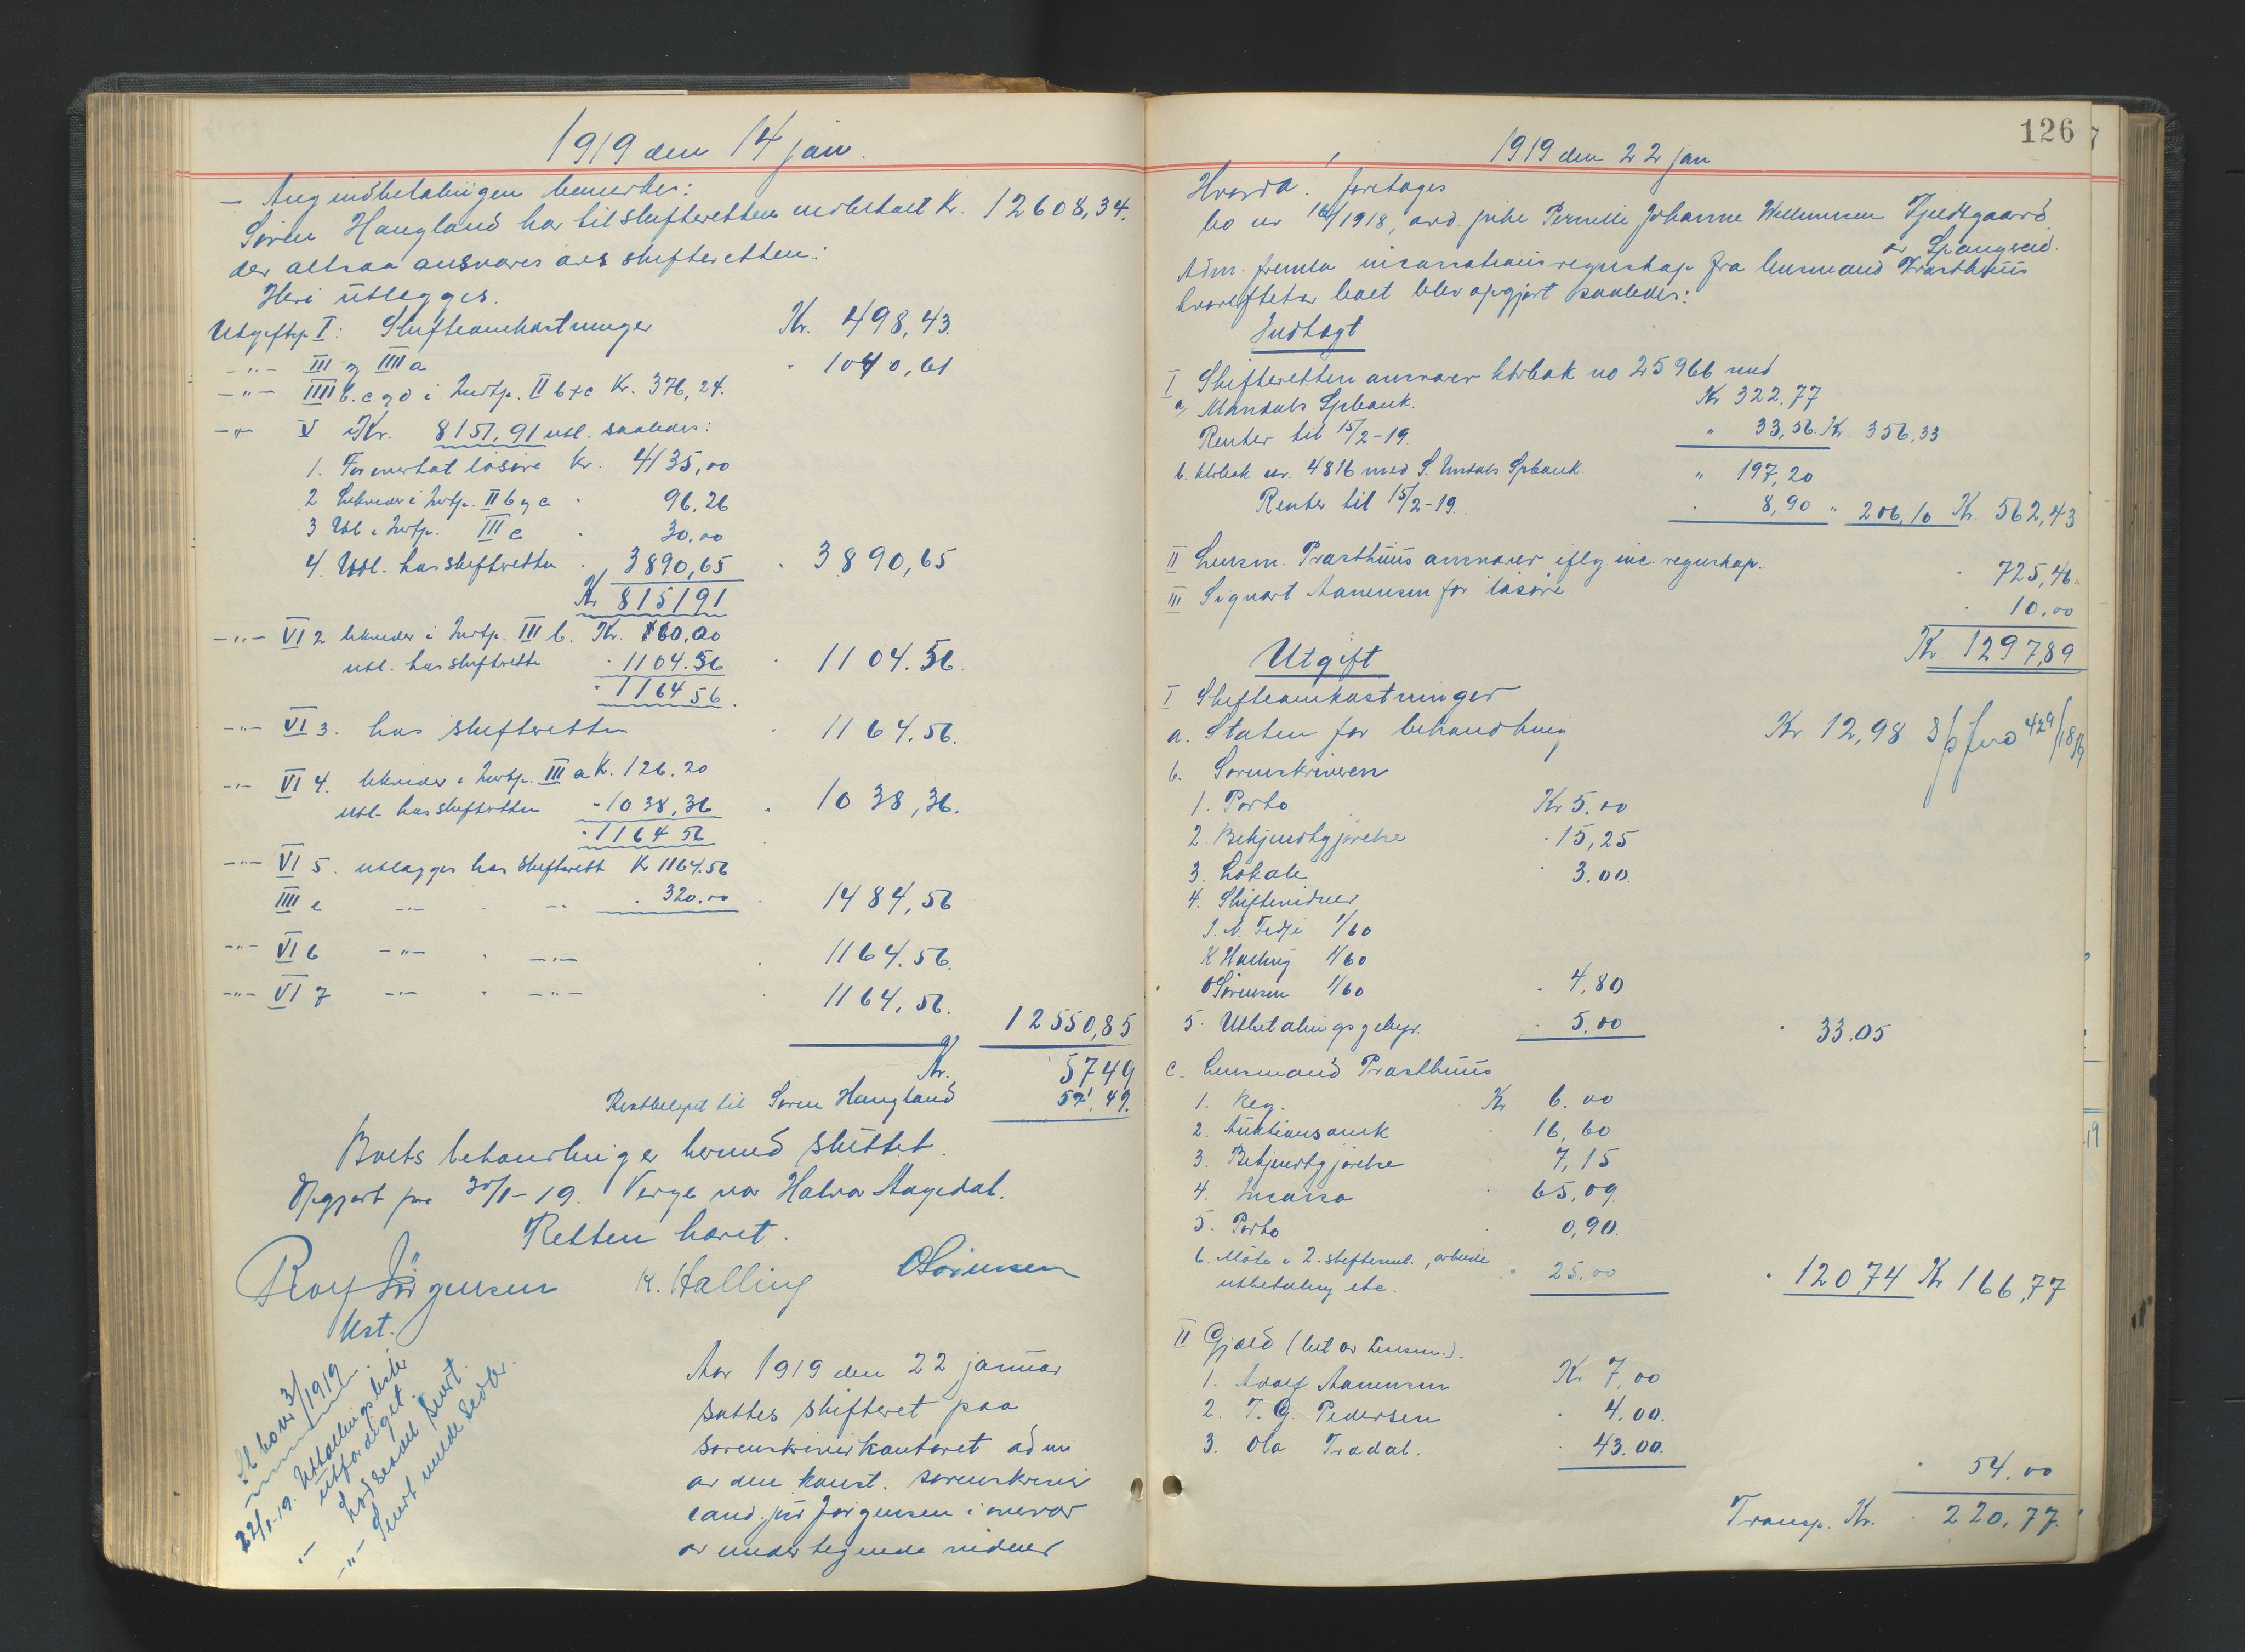 1919 den 14 jan.
– Ang indbetalingen bemerkes:
Søren Haugland har til skifteretten indbetalt Kr. 12608,34.
der altsaa ansvares av skifteretten:
Heri utlægges.
Utgiftsp I: Skifteomkostninger Kr. 498,43.
–"– III og IIII a " 1040,61
–"– IIII b. c og d i Indtp. II b + c Kr. 376,24.
–"– V Kr. 8151,91 utl. saaledes:
1. Forlovet løsøre Kr. 4135,00
2 i Indtp. II b og c " 96,26
3 Utl i Indtp. III c " 30.00
4. Utl. hos skifteretten " 3890,65 " 3890,65
Kr 815191
–"– VI 2 i Indtp. III b. Kr. 60,00
utl. hos skifterett " 1104.56 " 1104.56.
" 116456.
–"– VI 3. hos skifteretten " 1164.56.
–"– VI 4. i Indtp. III a K. 126.20
utl. hos skifteretten " 1038,36 " 1038,36.
" 116456
–"– VI 5. utlægges hos skifterett Kr 1164.56
IIII e –"– " –"– . 320.00 1484,56
–"– VI 6 –"– " –"– 1164.56.
–"– VI 7 –"– " –"– 1164,56. 12550,85
Kr. 5749
Restbeløpet til Søren Haugland 57.49.
Boets behandling er hermed sluttet.
Opgjort paa 30/1-19. Verge var Halvor Aagedal.
Retten hævet.
Rolf Jörgensen K. Halling O Sørensen
kst.
22/1-19. Utbetalingslister
utfærdiget.
Aar 1919 den 22 januar
sattes skifteret paa
sorenskriverkontoret adm
av den konst. sorenskriver
cand. jur Jørgensen i overvær
av undertegnede vidner
126
1919 den 22 jan
Hvorda. foretages
bo nr 16/1918, avd. pike Pernille Johanne Willumsen Fjeldsgaard
av Spangreid.
Adm. fremla incassationsregnskap fra lensmand Præsthuus
hvorefter boet blev opgjort saaledes:
Indtægt
I Skifteretten ansvarer ktrbok no 25966 med
a, Mandals Spbank. Kr 322,77
Renter til 15/2-19. " 33,56. Kr. 356,33
b. ktrbok nr. 4816 med S. Undals Spbank " 197,20
Renter til 15/2-19. " 8,90 " 206,10 Kr. 562,43
II Lensm. Præsthuus ansvarer iflg inc. regnskap. " 725,46.
III Sigvart Aanensen for løsøre " 10.00
Kr. 1297,89
Utgift
I Skifteomkostninger
a. Staten for behandling Kr 12,98
b. Sorenskriveren
1. Porto Kr 5.00
2. Bekjendtgjørelse " 15,25
3. Lokale " 3.00.
4. Skiftevidner
J. N. Tedje 1/60
K Halling 1/60
O Sørensen 1/60 " 4,80
5. Utbetalingsgebyr. " 5.00 " 33.05
c. Lensmand Præsthuus
1. Reg. Kr 6.00
2. Auktionsomk " 16,60
3. Bekjendtgjørelse " 7,15
4. Incasso " 65,09
5. Porto 0,90.
6. Møte i 2. skiftesaml., arbeide
utbetaling etc. " 25.00 " 120,74 Kr 166,77
II Gjæld (bet av Lensm.).
1. Adolf Aanensen Kr 7,00
2. T. G. Pedersen " 4.00.
3. Ola Trædal. " 43.00.
" 54.00
Transp. Kr. " 220,77.